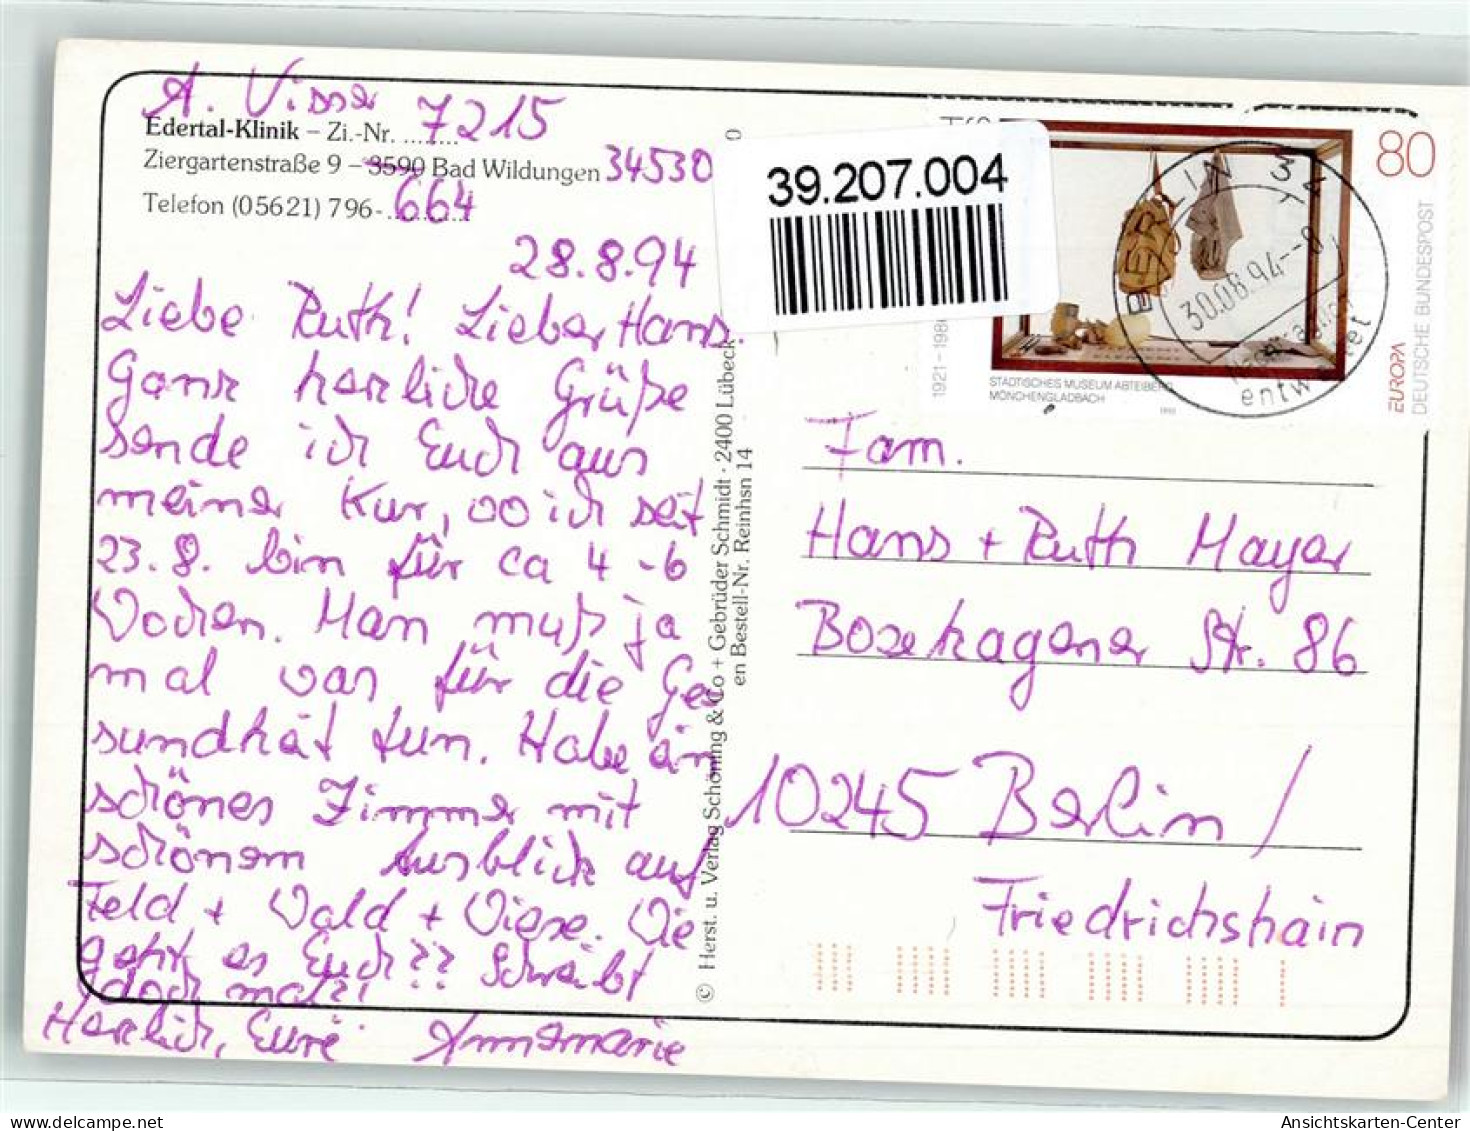 A. Visser
Edertal-Klinik – Zi.-Nr. ........ 7215
Ziergartenstraße 9 – 3590 Bad Wildungen 34530
Telefon (05621) 796- 664
28.8.94
Liebe Ruth! Lieber Hans.
Ganz herzliche Grüße
sende ich Euch aus
meiner Kur, wo ich seit
23.8. bin für ca 4-6
Wochen. Man muß ja
mal was für die Ge
sundheit tun. Habe ein
schönes Zimmer mit
schönem Ausblick auf
Feld + Wald + Wiese. Wie
geht es Euch?? Schreibt
doch mal!
Herzlich, Eure Annemarie
© Herst. u. Verlag Schöning & Co + Gebrüder Schmidt · 2400 Lübeck
en Bestell-Nr. Reinhsn 14
0
39.207.004
80
DEUTSCHE BUNDESPOST
EUROPA
1921–1986
STÄDTISCHES MUSEUM ABTEIBERG
MÖNCHENGLADBACH
1993
BERLIN 34
30.08.94
entwertet
Fam.
Hans + Ruth Mayer
Boxhagener Str. 86
10245 Berlin /
Friedrichshain
Ansichtskarten-Center